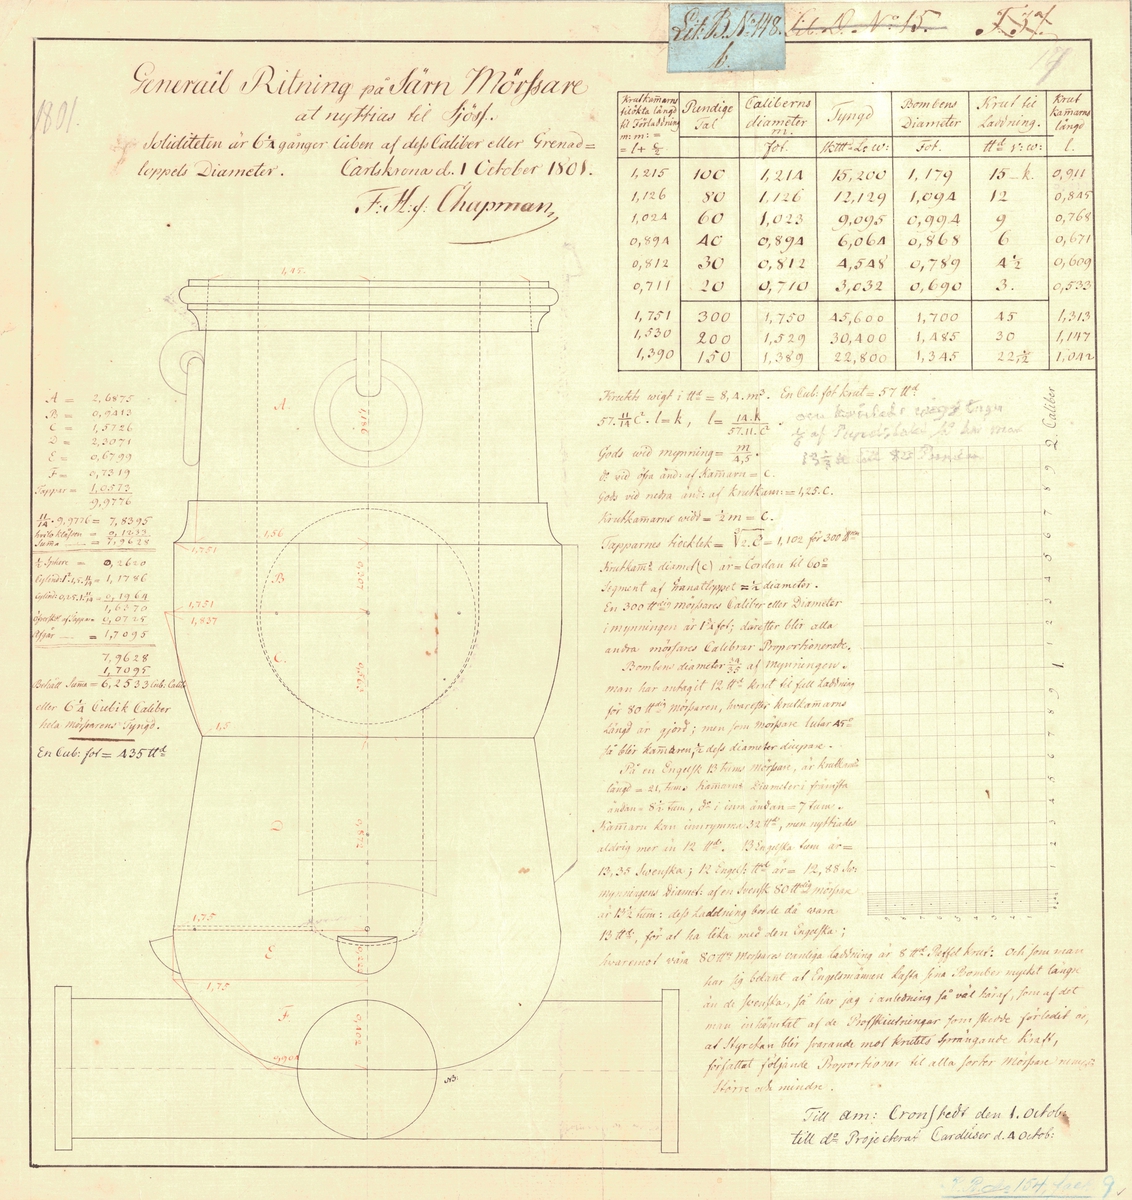 Lit: B. No 148.
b.
Lit. D. No 15.
1801.
Generall Ritning på Järn Mörssare
at nyttias til Siöss.
Soliditeten är 6¼ gånger Cuben af dess Caliber eller Grenad=
loppets Diameter. Carlskrona d. 1 October 1801.
F: H: af Chapman
Krutkamarns tilökta långd til Förladdning m: m: = = l + 
Rundige Tal
Caliberns diameter m.
Tyngd
Bombens Diameter
Krut til Laddning.
Krut kamarns långd
fot.
Fot.
l.
1,215 100 1,214 15,200 1,179 15 0,911
1,126 80 1,126 12,129 1,094 12 0,845
1,024 60 1,023 9,095 0,994 9 0,768
0,894 40 0,894 6,064 0,868 6 0,671
0,812 30 0,812 4,548 0,789 4½ 0,609
0,711 20 0,710 3,032 0,690 3. 0,533
1,751 300 1,750 45,600 1,700 45 1,313
1,530 200 1,529 30,400 1,485 30 1,147
1,390 150 1,389 22,800 1,345 22,½ 1,042
1,45.
A.
A = 2,6875
B = 0,9413
C = 1,5726
D = 2,3071
E = 0,6799
F = 0,7319
Tappar = 1,0573
9,9776
11/14 . 9,9776 = 7,8395
Summa 7,9628
½ Sphere = 0,2620
= 1,1786
= 0,1964
1,6370
0,0725
Afgår = 1,7095
7,9628
1,7095
Behåll Suma = 6,2533 Cub: Calib
eller 6¼ Cubik Caliber
hela mörssarens Tyngd.
En Cub: fot = 435 ttd
1,56
1,751
B
1,751
1,837
C.
1,5
D
0,872
1,75
E
1,75
F
0,402
NB.
Krutets wigt i ttd = 8,4. m³. En Cub: fot krut = 57 ttd
57. 11/14 C². l = k, l = 14.k / 57.11.C²
Gods wid mynning = m / 4,5.
D: vid öfra änd: af Kamarn = C.
Gods vid nedra änd: af krutkam: = 1,25. C.
Krutkamarns widd = ½ m = C.
Tapparnes tiocklek = = 1,102 för 300
Krutkams diamet (C) är = Cordan til 60
Segment af Granatloppet = ½ diameter.
En 300 mörssares Caliber eller Diameter
i mynningen är 1¾ fot; därefter blir alla
andra mörssares Calibrar Proportionerade.
Bombens diameter 34/35 af mynningen.
man har antagit 12 ttd krut til full Laddning
för 80 mörssaren, hvarefter krutkamarns
Långd är giord; men som mörssare lutar 45
så blir kamaren ½ dess diameter diupare.
På en Engelsk 13 tums Mörssare, är krutkam
längd = 21, tum. Kamarns Diameter i främsta
ändan = 8½ tum, do i inra ändan = 7 tum.
Kamarn kan inrymma 32 ttd, men nyttiades
aldrig mer än 12 ttd. 13 Engelska tum är =
13,35 Svenska; 12 Engels: ttd är = 12,88 Sv:
mynningens Diamet: af en Svensk 80 mörssare
är 13½ tum: dess Laddning borde då vara
13 ttd, för at ha lika med den Engelska;
hvaremot våra 80 Mörssares vanliga Laddning är 8 ttd Krut: och som man
har sig bekant at Engelsmännen kasta sina Bomber mycket längre
än de Svenska, så har jag i anledning så väl häraf, som af det
man inhämtat af de Profskiutningar som skedde förledit år,
at Styrckan blir svarande mot krutets sprängande Kraft,
författat följande Proportioner til alla sorter Mörssare
större och mindre.
Caliber
2 9 8 7 6 5 4 3 2 1 1. 9 8 7 6 5 4 3 2 1
Till am: Cronstedt den 1. Octob:
till do Projecterar Carduser d. 4 Octob: